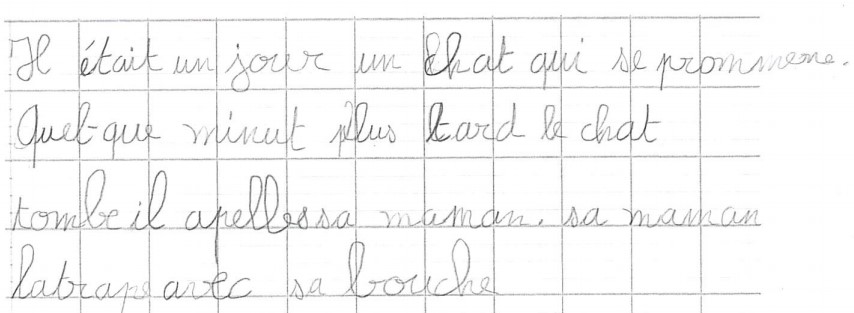 Il était un jour un chat qui se prommene.
Quel que minut plus tard le chat
tombe il apelles sa maman. sa maman
latrape avec sa bouche